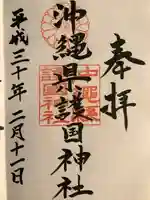 奉拝
沖縄県護国神社
平成二十年 二月十一日